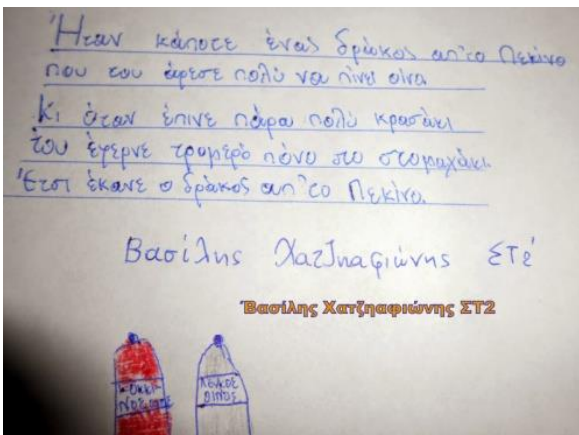 Ήταν κάποτε ένας δράκος απ'το Πεκίνο
που του άρεσε πολύ να πίνει οίνο
Κι όταν έπινε πάρα πολύ κρασάκι
του έφερνε τρομερό πόνο στο στομαχάκι.
Έτσι έκανε ο δράκος απ'το Πεκίνο.
Βασίλης Χατζηαφιώνης ΣΤ2
Βασίλης Χατζηαφιώνης ΣΤ2
ΚΟΚΚΙ
ΝΟΣ ΟΙΝΟΣ
ΛΕΥΚΟΣ
ΟΙΝΟΣ